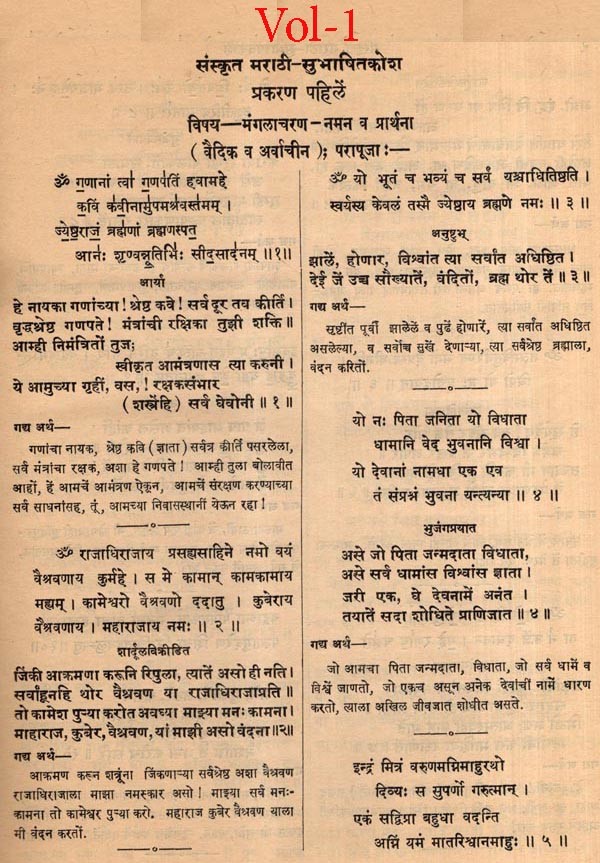 Vol-1
संस्कृत मराठी-सुभाषितकोश
प्रकरण पहिलें
विषय—मंगलाचरण-नमन व प्रार्थना
( वैदिक व अर्वाचीन ); परापूजाः—
ॐ ग॒णानां॑ त्वा ग॒णप॑तिं हवामहे
क॒विं क॑वी॒नामु॑पमश्र॑वस्तमम् ।
ज्ये॒ष्ठ॒राजं॒ ब्रह्म॑णां ब्रह्मणस्पत॒
आनः॑ शृ॒ण्वन्नू॒तिभिः॑ सी॒द॒साद॑नम् ॥१॥
आर्या
हे नायका गणांच्या ! श्रेष्ठ कवे ! सर्व दूर तव कीर्ति ।
वृद्धश्रेष्ठ गणपते ! मंत्रांची रक्षिका तुझी शक्ति ॥
आम्ही निमंत्रितों तुज;
स्वीकृत आमंत्रणास त्या करुनी ।
ये आमुच्या गृहीं, वस, ! रक्षकसंभार
(शस्त्रेंहि) सर्व घेवोनी ॥ १ ॥
गद्य अर्थ—
गणांचा नायक, श्रेष्ठ कवि (ज्ञाता) सर्वत्र कीर्ति पसरलेला,
सर्व मंत्रांचा रक्षक, अशा हे गणपते ! आम्ही तुला बोलावीत
आहों, हें आमचें आमंत्रण ऐकून, आमचें संरक्षण करण्याच्या
सर्व साधनांसह, तूं, आमच्या निवासस्थानीं येऊन रहा !
ॐ राजाधिराजाय प्रसह्यसाहिने नमो वयं
वैश्रवणाय कुर्महे । स मे कामान् कामकामाय
मह्यम् । कामेश्वरो वैश्रवणो ददातु । कुबेराय
वैश्रवणाय । महाराजाय नमः ॥ २ ॥
शार्दूलविक्रीडित
जिंकी आक्रमणा करूनि रिपुला, त्यातें असो ही नति ।
सर्वांहूनहि थोर वैश्रवण या राजाधिराजाप्रति ॥
तो कामेश पुऱ्या करोत अवघ्या माझ्या मनः कामना ।
माहाराज, कुबेर, वैश्रवण, यां माझी असो वंदना ॥२॥
गद्य अर्थ—
आक्रमण करून शत्रूंना जिंकणाऱ्या सर्वश्रेष्ठ अशा वैश्रवण
राजाधिराजाला माझा नमस्कार असो ! माझ्या सर्व मनः-
कामना तो कामेश्वर पुऱ्या करो. महाराज कुबेर वैश्रवण याला
मी वंदन करतों.
ॐ यो भूतं च भव्यं च सर्वं यश्चाधितिष्ठति ।
स्वर्यस्य केवलं तस्मै ज्येष्ठाय ब्रह्मणे नमः ॥ ३ ॥
अनुष्टुभ्
झालें, होणार, विश्वांत त्या सर्वांत अधिष्ठित ।
देई जें उच्च सौख्यातें, वंदितों, ब्रह्म थोर तें ॥ ३ ॥
गद्य अर्थ—
सृष्टींत पूर्वी झालेलें व पुढें होणारें, त्या सर्वांत अधिष्ठित
असलेल्या, व सर्वोच्च सुखें देणाऱ्या, त्या सर्वश्रेष्ठ ब्रह्माला,
वंदन करितों.
यो नः पिता जनिता यो विधाता
धामानि वेद भुवनानि विश्वा ।
यो देवानां नामधा एक एव
तं संप्रश्नं भुवना यन्त्यन्या ॥ ४ ॥
भुजंगप्रयात
असे जो पिता जन्मदाता विधाता,
असे सर्व धामांस विश्वांस ज्ञाता ।
जरी एक, घे देवनामें अनंत ।
तयातें सदा शोधिते प्राणिजात ॥ ४॥
गद्य अर्थ—
जो आमचा पिता जन्मदाता, विधाता, जो सर्व धामें व
विश्वें जाणतो, जो एकच असून अनेक देवांचीं नामें धारण
करतो, त्याला अखिल जीवजात शोधीत असते.
इन्द्रं मित्रं वरुणमग्निमाहुरथो
दिव्यः स सुपर्णो गरुत्मान् ।
एकं सद्विप्रा बहुधा वदन्ति
अग्निं यमं मातरिश्वानमाहुः ॥ ५ ॥